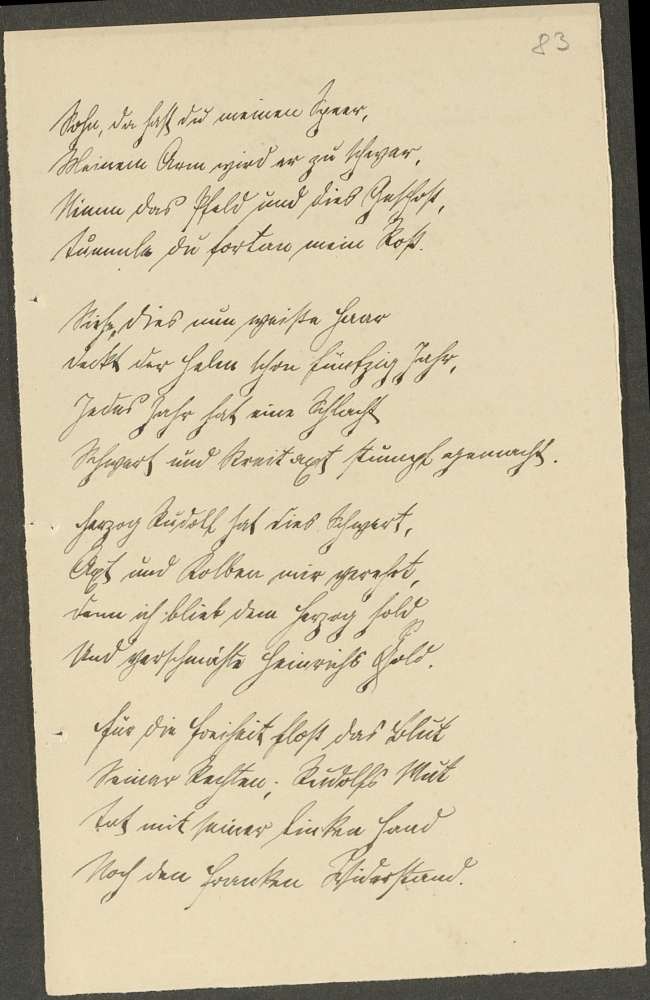 83
Sohn, da hast du meinen Speer,
Meinem Arm wird er zu schwer,
Nimm das Schild und dies Geschoß,
tummle du fortan mein Roß.
Siehe, dies nun weiße Haar
deckt der Helm schon fünfzig Jahr,
Jedes Jahr hat eine Schlacht
Schwert und Streitaxt stumpf gemacht.
Herzog Rudolf hat dies Schwert,
Axt und Kolben mir verehrt,
denn ich blieb dem Herzog hold
Und verschmähte Heinrichs Gold.
Für die Freiheit floß das Blut
Seiner Rechten; Rudolfs Mut
tat mit seiner linken Hand
Noch den Franken Widerstand.